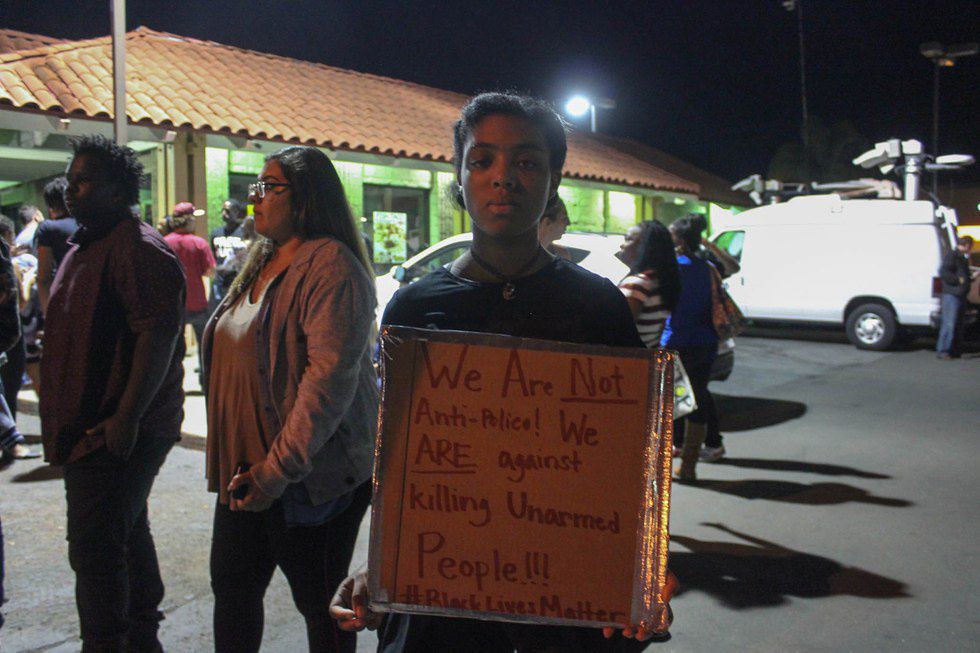 We Are Not
Anti-Police! We
ARE against
killing Unarmed
People!!!
#BlackLivesMatter